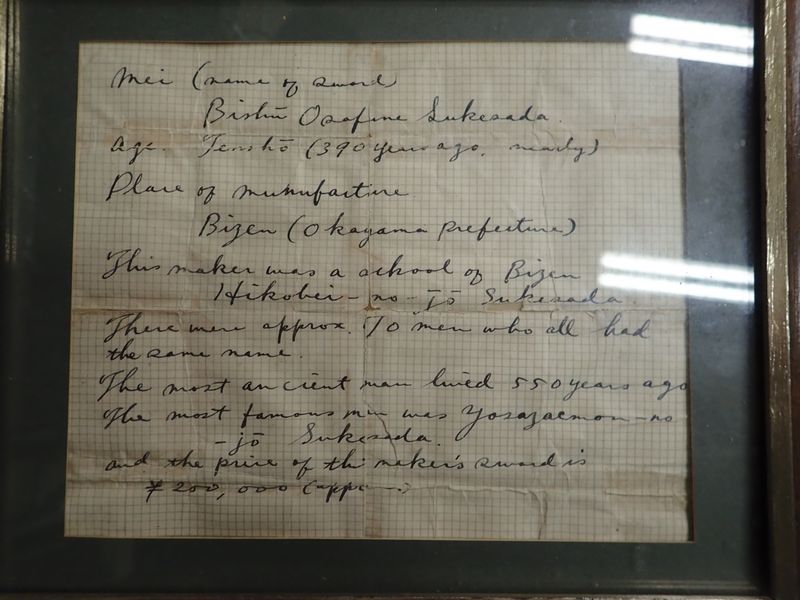 Mei (name of sword)
Bishū Osafune Sukesada.
Age. Tenshō (390 years ago, nearly)
Place of munufacture
Bizen (Okayama prefecture)
This maker was a school of Bizen
Hikobei-no-jō Sukesada
There were approx. 70 men who all had
the same name.
The most ancient man lived 550 years ago
The most famous man was Yosazaemon-no
-jō Sukesada.
and the price of this maker's sword is
¥ 200,000 (appr